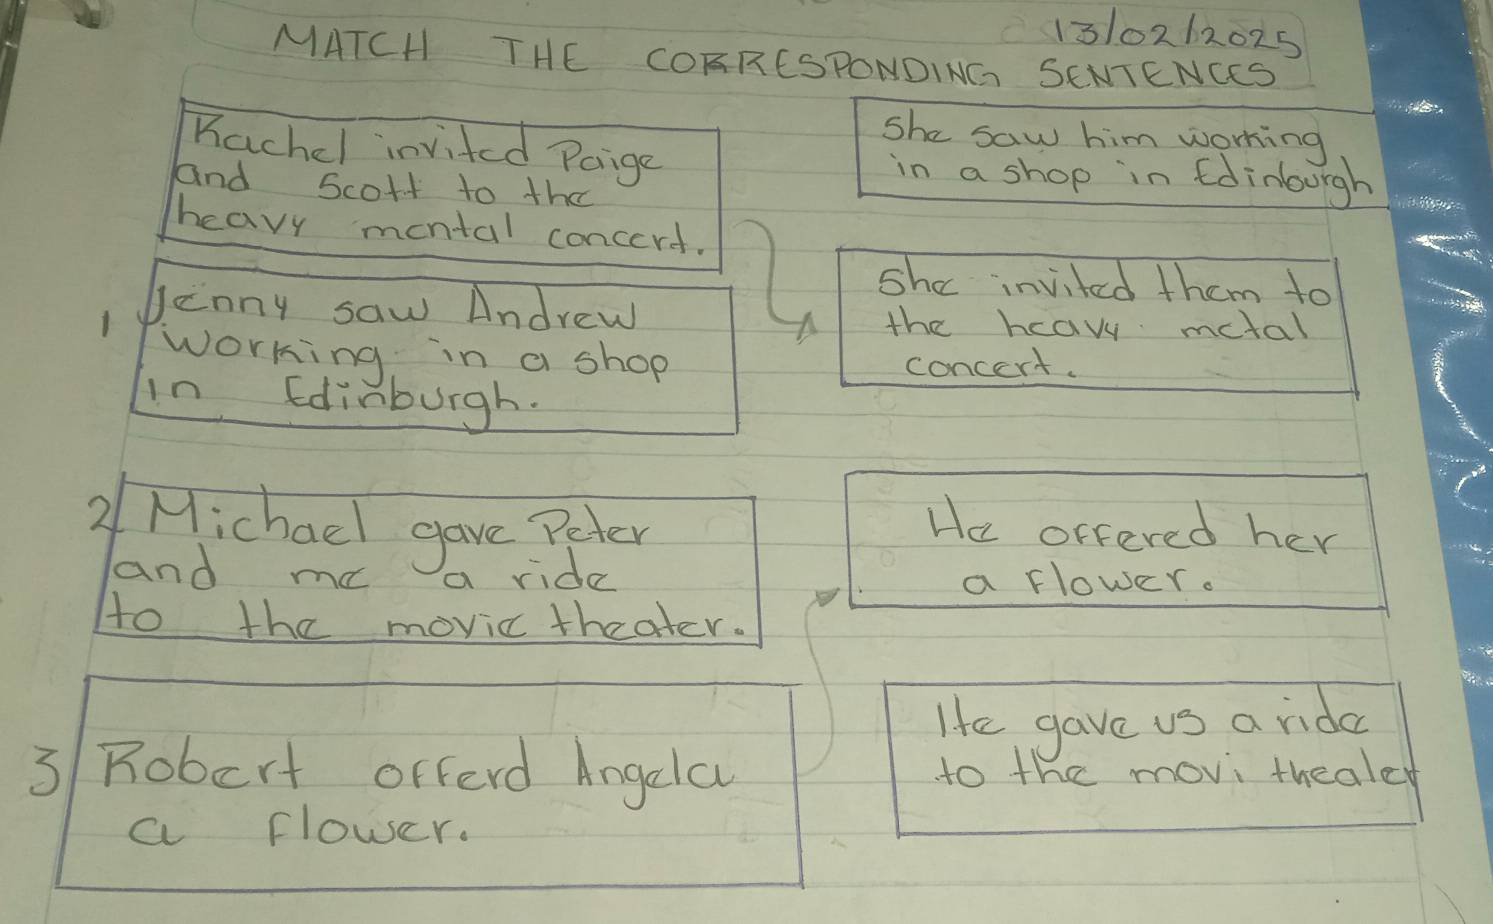 13/02/2025
MATCH THE CORRESPONDING SENTENCES
Rachel invited Paige
and Scott to the
heavy mental concert.
She saw him working
in a shop in Edinburgh
1 Jenny saw Andrew
working in a shop
in Edinburgh.
She invited them to
the heavy metal
concert.
2 Michael gave Peter
and me a ride
to the movie theater.
He offered her
a flower.
3 Robert offerd Angela
a flower.
He gave us a ride
to the movi theater